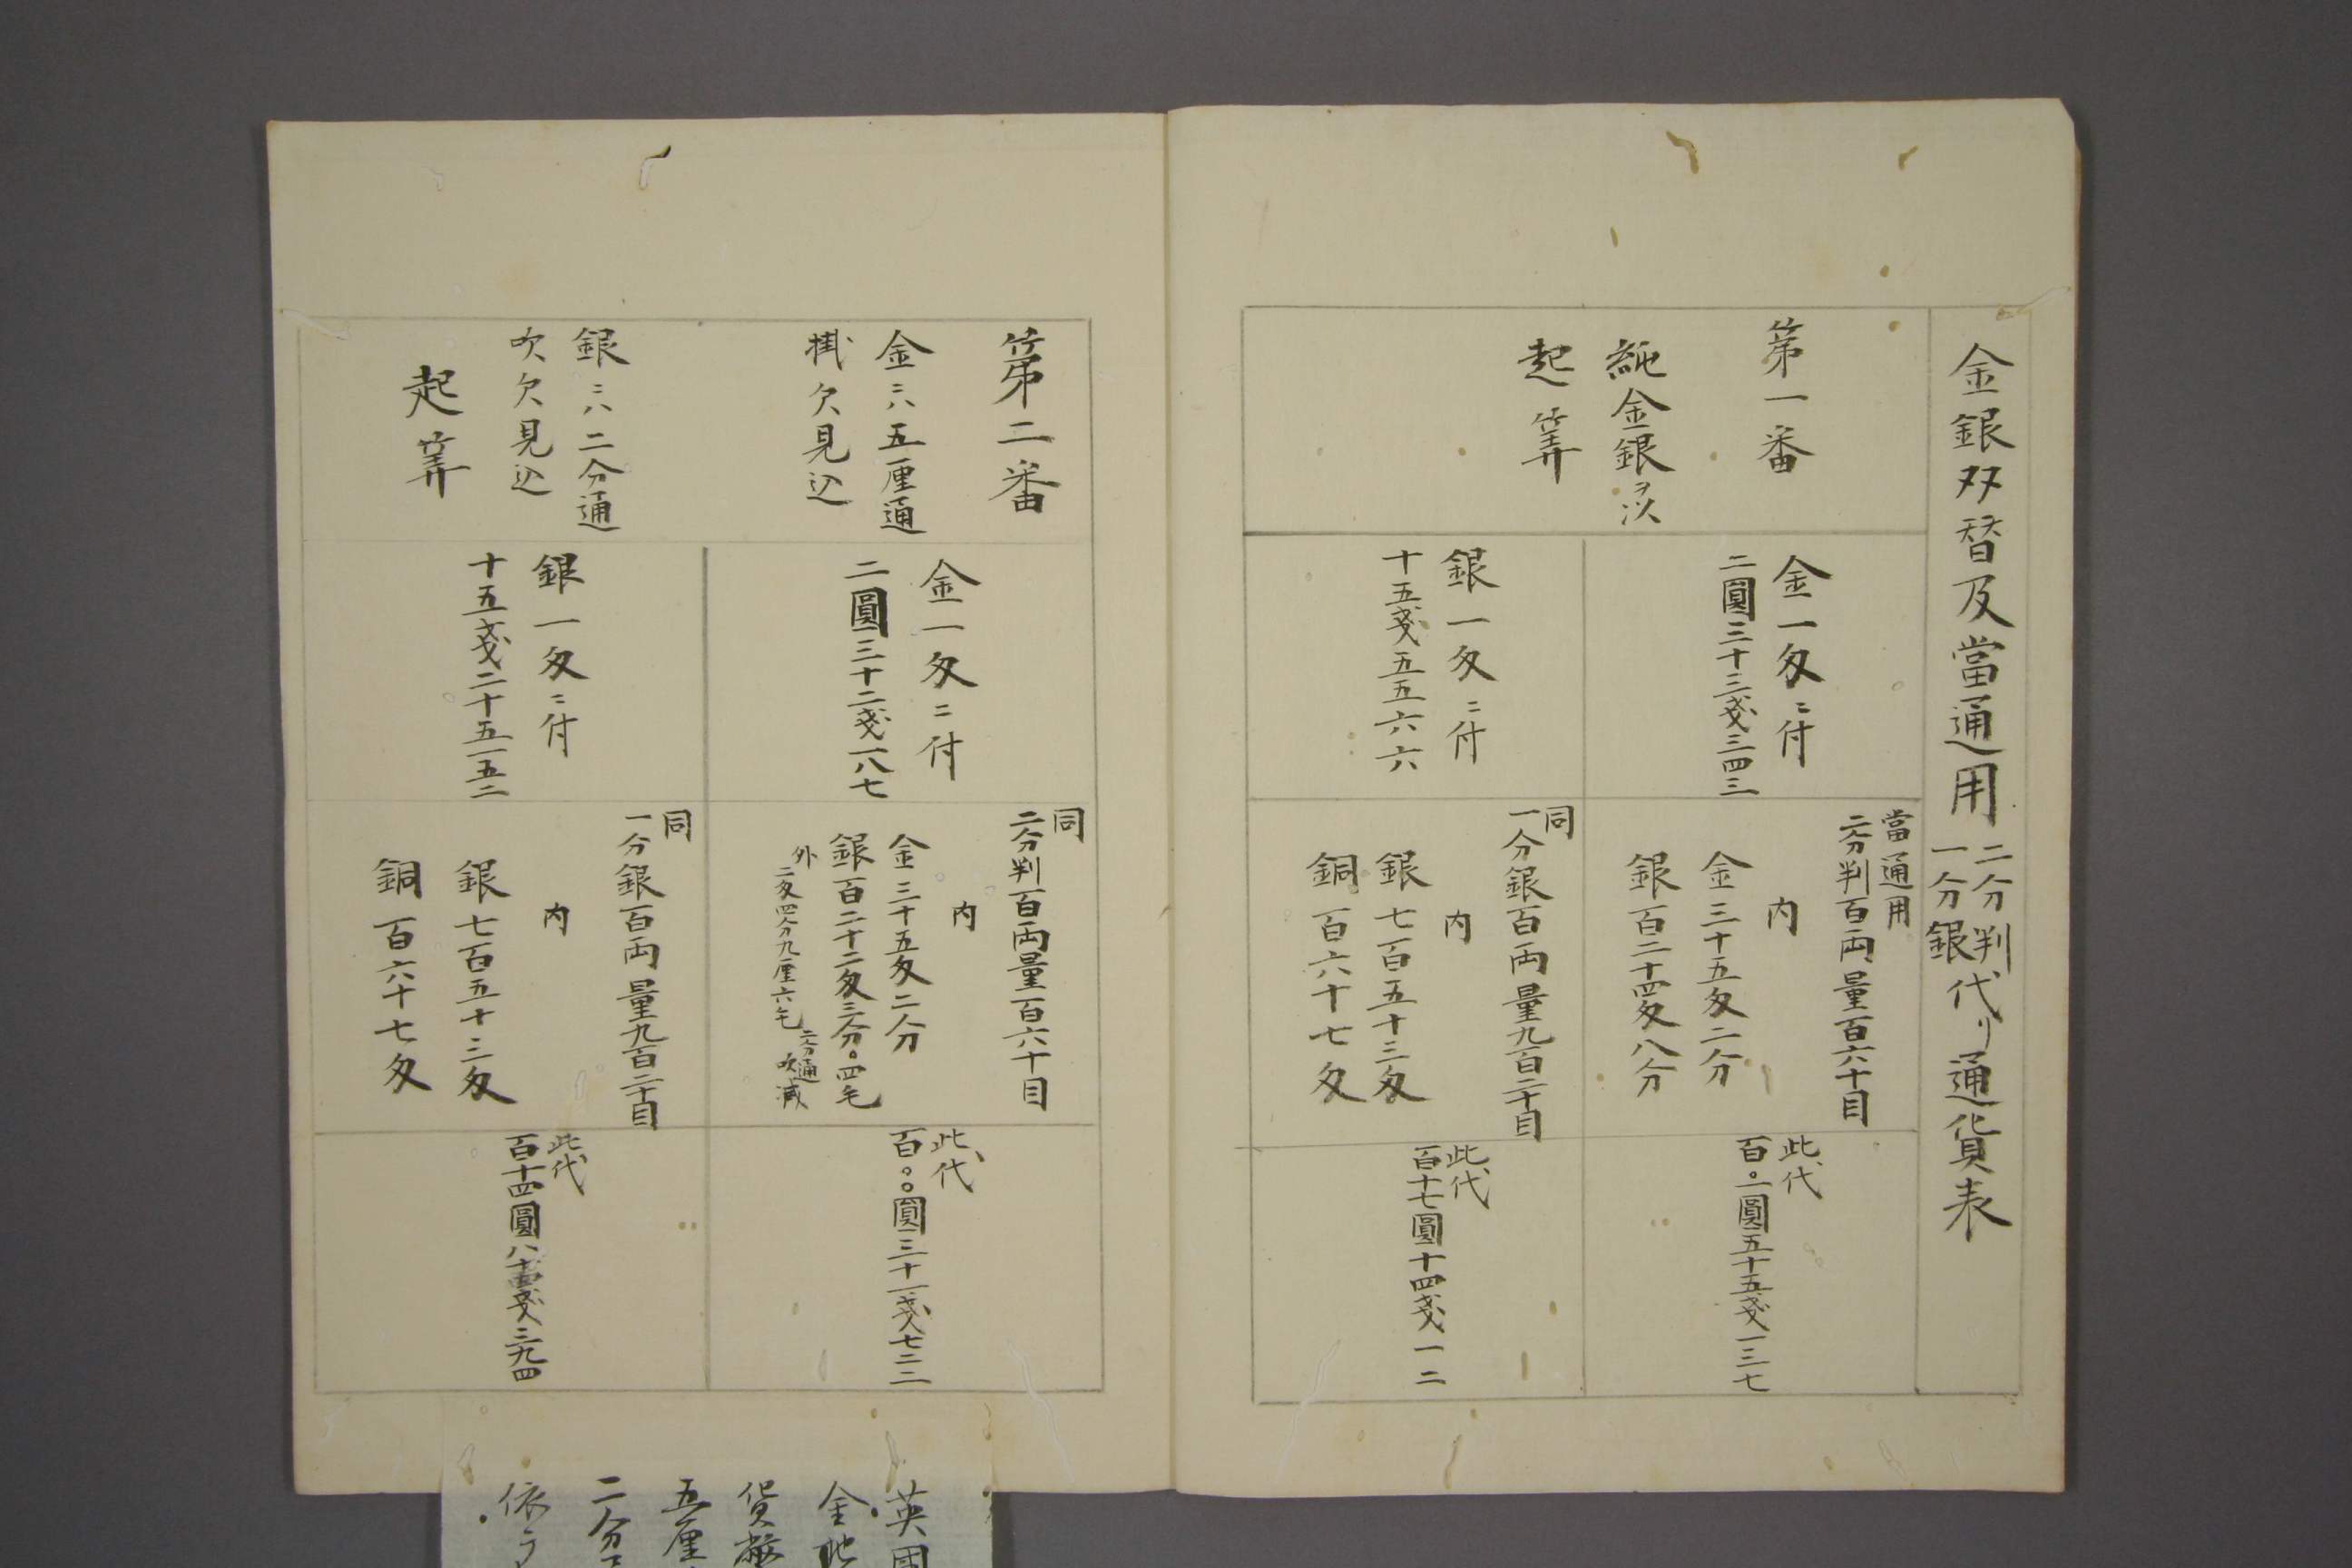 金銀双替及當通用二分判一分銀代リ通貨表
第一番
純金銀ヲ以
起筭
金一匁ニ付
二圓三十三戔三四三
銀一匁ニ付
十五戔五五六六
當通用
二分判百両量百六十目
内
金三十五匁二分
銀百二十四匁八分
同
一分銀百両量九百二十目
内
銀七百五十三匁
銅百六十七匁
此代
百〇一圓五十五戔一三七
此代
百十七圓十四戔一二
第二番
金ニハ五厘通
掛欠見込
銀ニハ二分通
吹欠見込
起筭
金一匁ニ付
二圓三十二戔一八七
銀一匁ニ付
十五戔二十五一五二
同
二分判百両量百六十目
内
金三十五匁二分
銀百二十二匁三分〇四毛
外
二匁四分九厘六毛 二分通吹減
同
一分銀百両量九百二十目
内
銀七百五十三匁
銅百六十七匁
此代
百〇〇圓三十一戔七二二
此代
百十四圓八十戔三九四
英国
金地
貨幣
五厘
二分
依テ